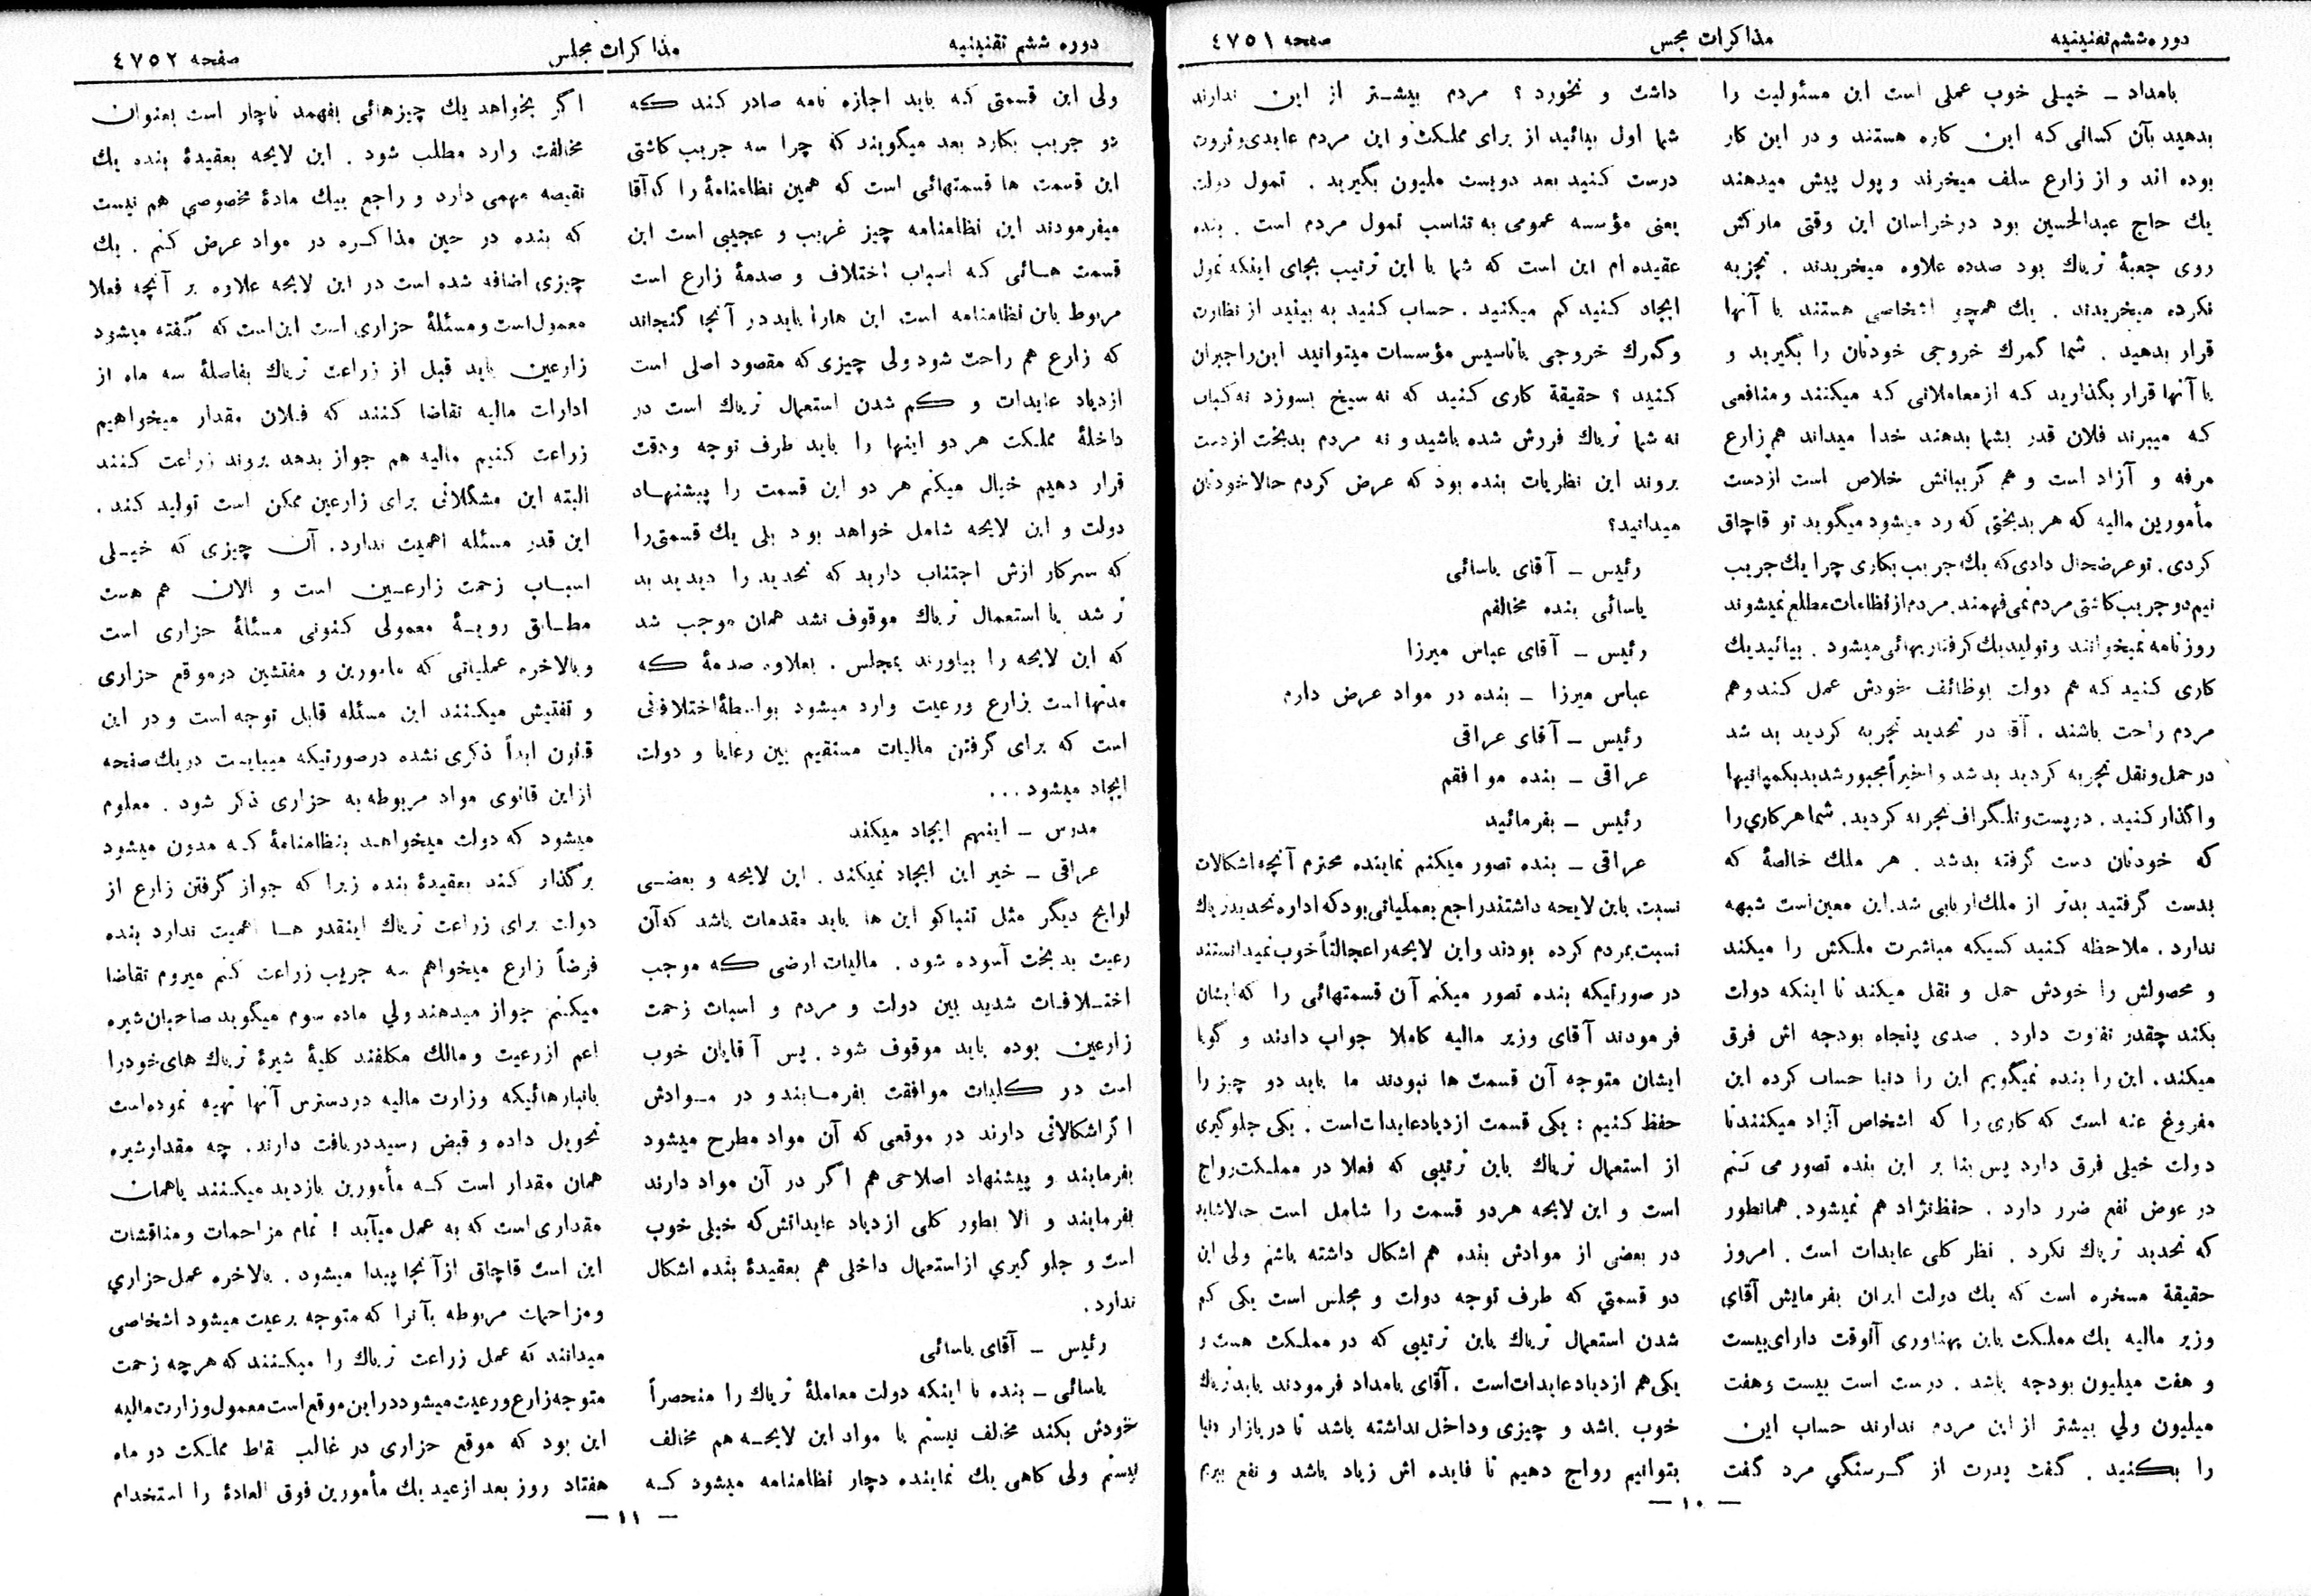 دوره ششم تقنینیه
مذاکرات مجلس
صفحه ٤٧٥١
بامداد ـ خیلی خوب عملی است این مسئولیت را
بدهید بآن کسانی که این کاره هستند و در این کار
بوده اند و از زارع سلف میخرند و پول پیش میدهند
یك حاج عبدالحسین بود در خراسان این وقتی مارکش
روی جعبهٔ تریاك بود صدده علاوه میخریدند . تجزیه
نکرده میخریدند . یك همچو اشخاصی هستند با آنها
قرار بدهید . شما گمرك خروجی خودتان را بگیرید و
با آنها قرار بگذارید که از معاملاتی که میکنند و منافعی
که میبرند فلان قدر بشما بدهند خدا میداند هم زارع
مرفه و آزاد است و هم گریبانش خلاص است از دست
مأمورین مالیه که هر بدبختی که رد میشود میگوید تو قاچاق
کردی . تو عرضحال دادی که یك جریب بکاری چرا یك جریب
نیم دو جریب کاشتی مردم نمی فهمند . مردم از نظامات مطلع نمیشوند
روزنامه نمیخوانند و تولید یك گرفتاریهائی میشود . بیائید یك
کاری کنید که هم دولت بوظائف خودش عمل کند و هم
مردم راحت باشند . آقا در تحدید تجربه کردید بد شد
در حمل و نقل تجربه کردید بد شد و اخیراً مجبور شدید بکمپانیها
واگذار کنید . در پست و تلگراف تجربه کردید . شما هر کاری را
که خودتان دست گرفته بدشد . هر ملك خالصهٔ که
بدست گرفتید بدتر از ملك اربابی شد . این معین است شبهه
ندارد . ملاحظه کنید کسیکه مباشرت ملکش را میکند
و محصولش را خودش حمل و نقل میکند تا اینکه دولت
بکند چقدر تفاوت دارد . صدی پنجاه بودجه اش فرق
میکند . این را بنده نمیگویم این را دنیا حساب کرده این
مفروغ عنه است که کاری را که اشخاص آزاد میکنند تا
دولت خیلی فرق دارد پس بنا بر این بنده تصور می کنم
در عوض نفع ضرر دارد . حفظ نژاد هم نمیشود . همانطور
که تحدید تریاك نکرد . نظر کلی عایدات است . امروز
حقیقة مسخره است که یك دولت ایران بفرمایش آقای
وزیر مالیه یك مملکت باین پهناوری آنوقت دارای بیست
و هفت میلیون بودجه باشد . درست است بیست و هفت
میلیون ولي بیشتر از این مردم ندارند حساب این
را بکنید . گفت پدرت از گرسنگي مرد گفت
داشت و نخورد ؟ مردم بیشتر از این ندارند
شما اول بیائید از برای مملکت و این مردم عایدی و ثروت
درست کنید بعد دویست ملیون بگیرید . تمول دولت
یعنی مؤسسه عمومی به تناسب تمول مردم است . بنده
عقیده ام این است که شما با این ترتیب بجای اینکه تمول
ایجاد کنید کم میکنید . حساب کنید به بینید از نظارت
و گمرك خروجی یا تاسیس مؤسسات میتوانید این را جبران
کنید ؟ حقیقة کاری کنید که نه سیخ بسوزد نه کباب
نه شما تریاك فروش شده باشید و نه مردم بدبخت از دست
بروند این نظریات بنده بود که عرض کردم حالا خودتان
میدانید؟
رئیس ـ آقای یاسائی
یاسائی بنده مخالفم
رئیس ـ آقای عباس میرزا
عباس میرزا ـ بنده در مواد عرض دارم
رئیس ـ آقای عراقی
عراقی ـ بنده موافقم
رئیس ـ بفرمائید
عراقی ـ بنده تصور میکنم نماینده محترم آنچه اشکالات
نسبت باین لایحه داشتند راجع بعملیاتی بود که اداره تحدید تریاك
نسبت بمردم کرده بودند و این لایحه را عجالتاً خوب نمیدانستند
در صورتیکه بنده تصور میکنم آن قسمتهائی را که ایشان
فرمودند آقای وزیر مالیه کاملا جواب دادند و گویا
ایشان متوجه آن قسمت ها نبودند ما باید دو چیز را
حفظ کنیم : یکی قسمت ازدیاد عایدات است . یکی جلوگیری
از استعمال تریاك باین ترتیبی که فعلا در مملکت رواج
است و این لایحه هردو قسمت را شامل است حالا شاید
در بعضی از موادش بنده هم اشکال داشته باشم ولی این
دو قسمتي که طرف توجه دولت و مجلس است یکی کم
شدن استعمال تریاك باین ترتیبی که در مملکت هست و
یکی هم ازدیاد عایدات است . آقای بامداد فرمودند باید تریاك
خوب باشد و چیزی و داخل نداشته باشد تا در بازار دنیا
بتوانیم رواج دهیم تا فایده اش زیاد باشد و نفع ببریم
ـ ١٠ ـ
دوره ششم تقنینیه
مذاکرات مجلس
صفحه ٤٧٥٢
ولی این قسمتی که باید اجازه نامه صادر کند که
دو جریب بکارد بعد میگویند که چرا سه جریب کاشتی
این قسمت ها قسمتهائی است که همین نظامنامهٔ را که آقا
میفرمودند این نظامنامه چیز غریب و عجیبی است این
قسمت هائی که اسباب اختلاف و صدمهٔ زارع است
مربوط باین نظامنامه است این هارا باید در آنجا گنجاند
که زارع هم راحت شود ولی چیزی که مقصود اصلی است
ازدیاد عایدات و کم شدن استعمال تریاك است در
داخلهٔ مملکت هر دو اینها را باید طرف توجه و دقت
قرار دهیم خیال میکنم هر دو این قسمت را پیشنهاد
دولت و این لایحه شامل خواهد بود بلی یك قسمتی را
که سرکار ازش اجتناب دارید که تحدید را دیدید بد
تر شد یا استعمال تریاك موقوف نشد همان موجب شد
که این لایحه را بیاورند بمجلس . بعلاوه صدمهٔ که
مدتها است بزارع ورعیت وارد میشود بواسطهٔ اختلافاتی
است که برای گرفتن مالیات مستقیم بین رعایا و دولت
ایجاد میشود ...
مدرس ـ اینهم ایجاد میکند
عراقی ـ خیر این ایجاد نمیکند . این لایحه و بعضی
لوایح دیگر مثل تنباکو این ها باید مقدمات باشد که آن
رعیت بدبخت آسوده شود . مالیات ارضی که موجب
اختلافات شدید بین دولت و مردم و اسباب زحمت
زارعین بوده باید موقوف شود . پس آقایان خوب
است در کلیات موافقت بفرمایند و در موادش
اگر اشکالاتی دارند در موقعی که آن مواد مطرح میشود
بفرمایند و پیشنهاد اصلاحی هم اگر در آن مواد دارند
بفرمایند و الا بطور کلی ازدیاد عایداتش که خیلی خوب
است و جلو گیري از استعمال داخلی هم بعقیدهٔ بنده اشکال
ندارد .
رئیس ـ آقای یاسائی
یاسائی ـ بنده با اینکه دولت معاملهٔ تریاك را منحصراً
خودش بکند مخالف نیستم با مواد این لایحه هم مخالف
نیستم ولی گاهی یك نماینده دچار نظامنامه میشود که
اگر بخواهد یك چیزهائی بفهمد ناچار است بعنوان
مخالفت وارد مطلب شود . این لایحه بعقیدهٔ بنده یك
نقیصه مهمی دارد و راجع بیك مادهٔ مخصوصی هم نیست
که بنده در حین مذاکره در مواد عرض کنم . یك
چیزی اضافه شده است در این لایحه علاوه بر آنچه فعلا
معمول است و مسئلهٔ حزاری است این است که گفته میشود
زارعین باید قبل از زراعت تریاك بفاصلهٔ سه ماه از
ادارات مالیه تقاضا کنند که فلان مقدار میخواهیم
زراعت کنیم مالیه هم جواز بدهد بروند زراعت کنند
البته این مشکلاتی برای زارعین ممکن است تولید کند .
این قدر مسئله اهمیت ندارد . آن چیزی که خیلی
اسباب زحمت زارعین است و الان هم هست
مطابق رویهٔ معمولی کنونی مسئلهٔ حزاری است
و بالاخره عملیاتی که مامورین و مفتشین در موقع حزاری
و تفتیش میکنند این مسئله قابل توجه است و در این
قانون ابداً ذکری نشده در صورتیکه میبایست در یك صفحه
از این قانوی مواد مربوطه به حزاری ذکر شود . معلوم
میشود که دولت میخواهد بنظامنامهٔ که مدون میشود
برگذار کند بعقیدهٔ بنده زیرا که جواز گرفتن زارع از
دولت برای زراعت تریاك اینقدر ها اهمیت ندارد بنده
فرضاً زارع میخواهم سه جریب زراعت کنم میروم تقاضا
میکنم جواز میدهند ولي ماده سوم میگوید صاحبان شیره
اعم از رعیت و مالك مکلفند کلیهٔ شیرهٔ تریاك های خودرا
بانبارهائیکه وزارت مالیه در دسترس آنها تهیه نموده است
تحویل داده و قبض رسید دریافت دارند . چه مقدار شیره
همان مقدار است که مأمورین بازدید میکنند یا همان
مقداری است که به عمل میآید ! تمام مزاحمات و مناقشات
این است قاچاق از آنجا پیدا میشود . بالاخره عمل حزاري
و مزاحمات مربوطه بآنرا که متوجه برعیت میشود اشخاصی
میدانند که عمل زراعت تریاك را میکنند که هر چه زحمت
متوجه زارع و رعیت میشود در این موقع است معمول وزارت مالیه
این بود که موقع حزاری در غالب نقاط مملکت دو ماه
هفتاد روز بعد از عید یك مأمورین فوق العادهٔ را استخدام
ـ ١١ ـ